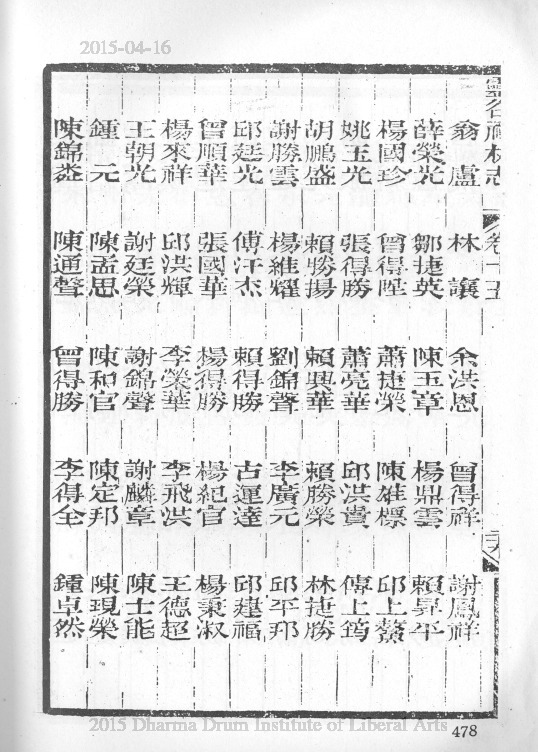 2015-04-16
志 卷十五
翁盧 林讓 余洪恩 曾得祥 謝鳳祥
薛榮光 鄒捷英 陳玉章 楊鼎雲 賴昇平
楊國珍 曾得陞 蕭捷榮 陳雄標 邱上鰲
姚玉光 張得勝 蕭亮華 邱洪貴 傅上筠
胡鵬盛 賴勝揚 賴興華 賴勝榮 林捷勝
謝勝雲 楊維耀 劉錦聲 李廣元 邱平邦
邱廷光 傅汗杰 賴得勝 古運達 邱建福
曾順華 張國華 楊得勝 楊紀官 楊秉淑
楊來祥 邱洪輝 李榮華 李飛洪 王德超
王朝光 謝廷榮 謝錦聲 謝麟章 陳士能
鍾元 陳孟思 陳和官 陳定邦 陳現榮
陳錦 陳通聲 曾得勝 李得全 鍾卓然
2015 Dharma Drum Institute of Liberal Arts
478